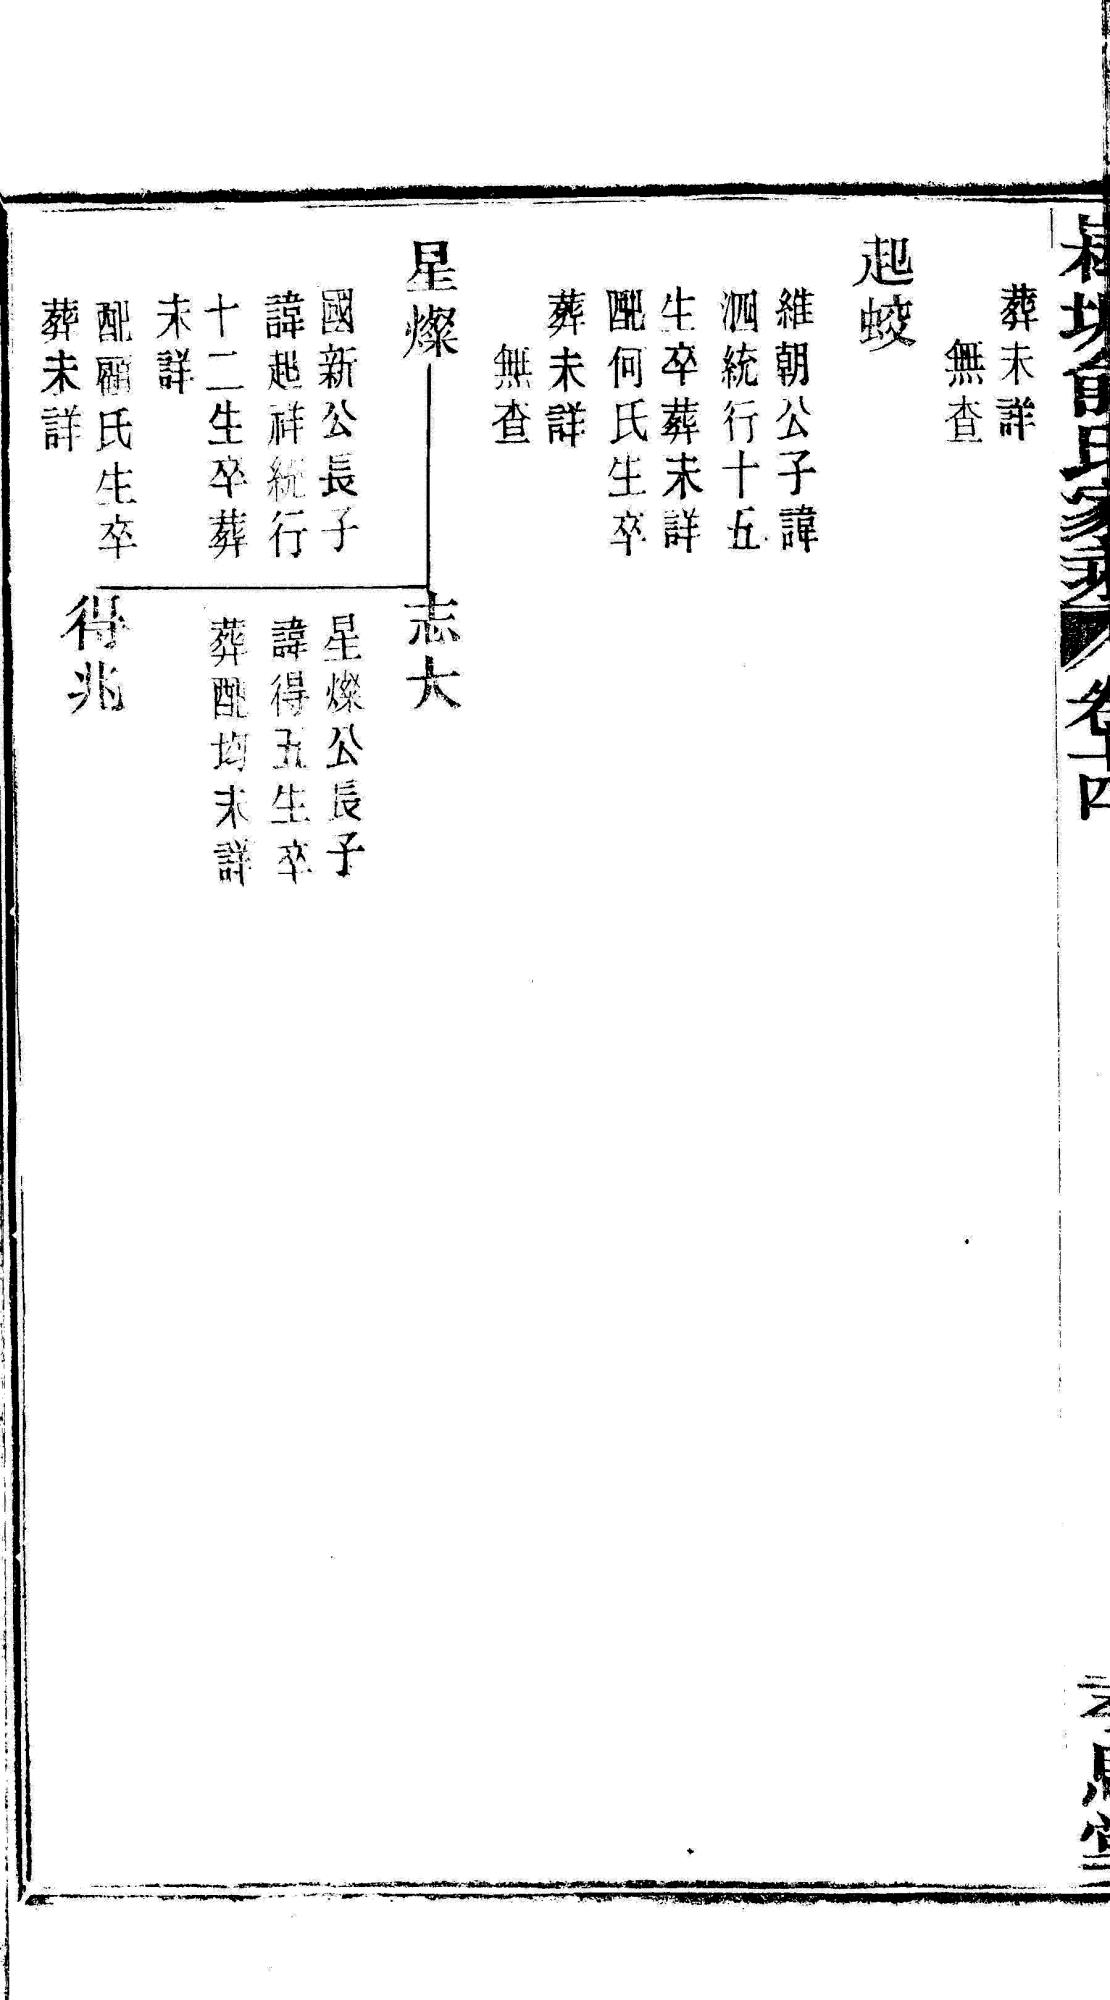 俞氏家乘
卷十四
葬未詳
無查
起蛟
維朝公子諱
泗統行十五
生卒葬未詳
配何氏生卒
葬未詳
無查
星燦
國新公長子
諱起祥統行
十二生卒葬
未詳
配顧氏生卒
葬未詳
志大
星燦公長子
諱得五生卒
葬配均未詳
得兆